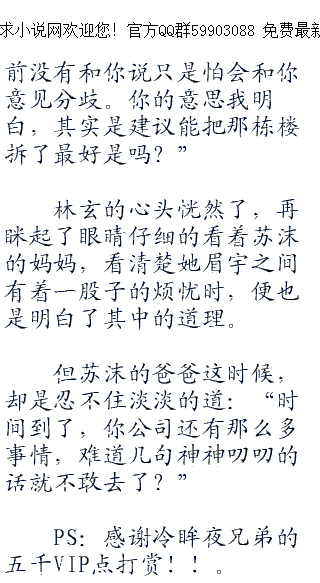 求小说网欢迎您！官方QQ群59903088 免费最新
前没有和你说只是怕会和你
意见分歧。你的意思我明
白，其实是建议能把那栋楼
拆了最好是吗？”
林玄的心头恍然了，再
眯起了眼睛仔细的看着苏沫
的妈妈，看清楚她眉宇之间
有着一股子的烦忧时，便也
是明白了其中的道理。
但苏沫的爸爸这时候，
却是忍不住淡淡的道：“时
间到了，你公司还有那么多
事情，难道几句神神叨叨的
话就不敢去了？”
PS：感谢冷眸夜兄弟的
五千VIP点打赏！！。